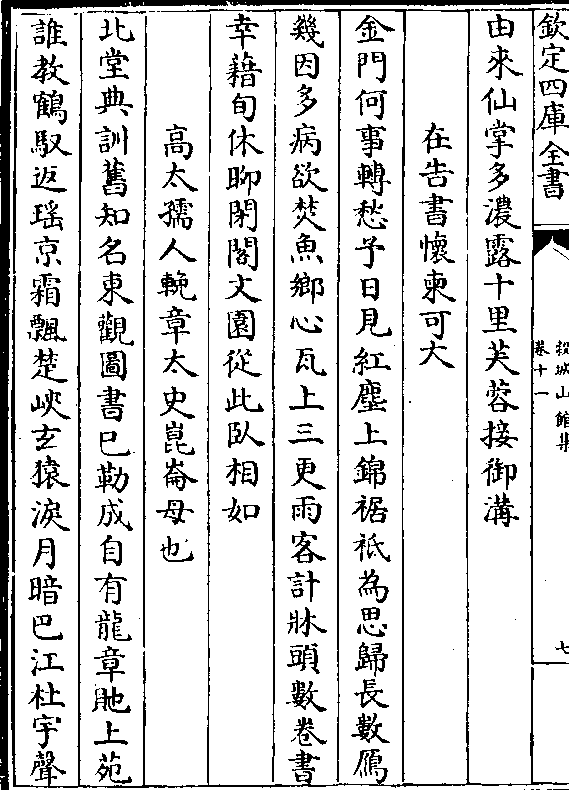 欽定四庫全書
穀城山館集
卷十一
七
由來仙掌多濃露十里芙蓉接御溝
在告書懷柬可大
金門何事轉愁予日見紅塵上錦裾祗為思歸長數鴈
幾因多病欲焚魚鄉心瓦上三更雨客計牀頭數卷書
幸藉旬休聊閉閣文園從此臥相如
高太孺人輓章太史崑崙母也
北堂典訓舊知名東觀圖書已勒成自有龍章貤上苑
誰教鶴馭返瑶京霜飄楚峽玄猿淚月暗巴江杜宇聲